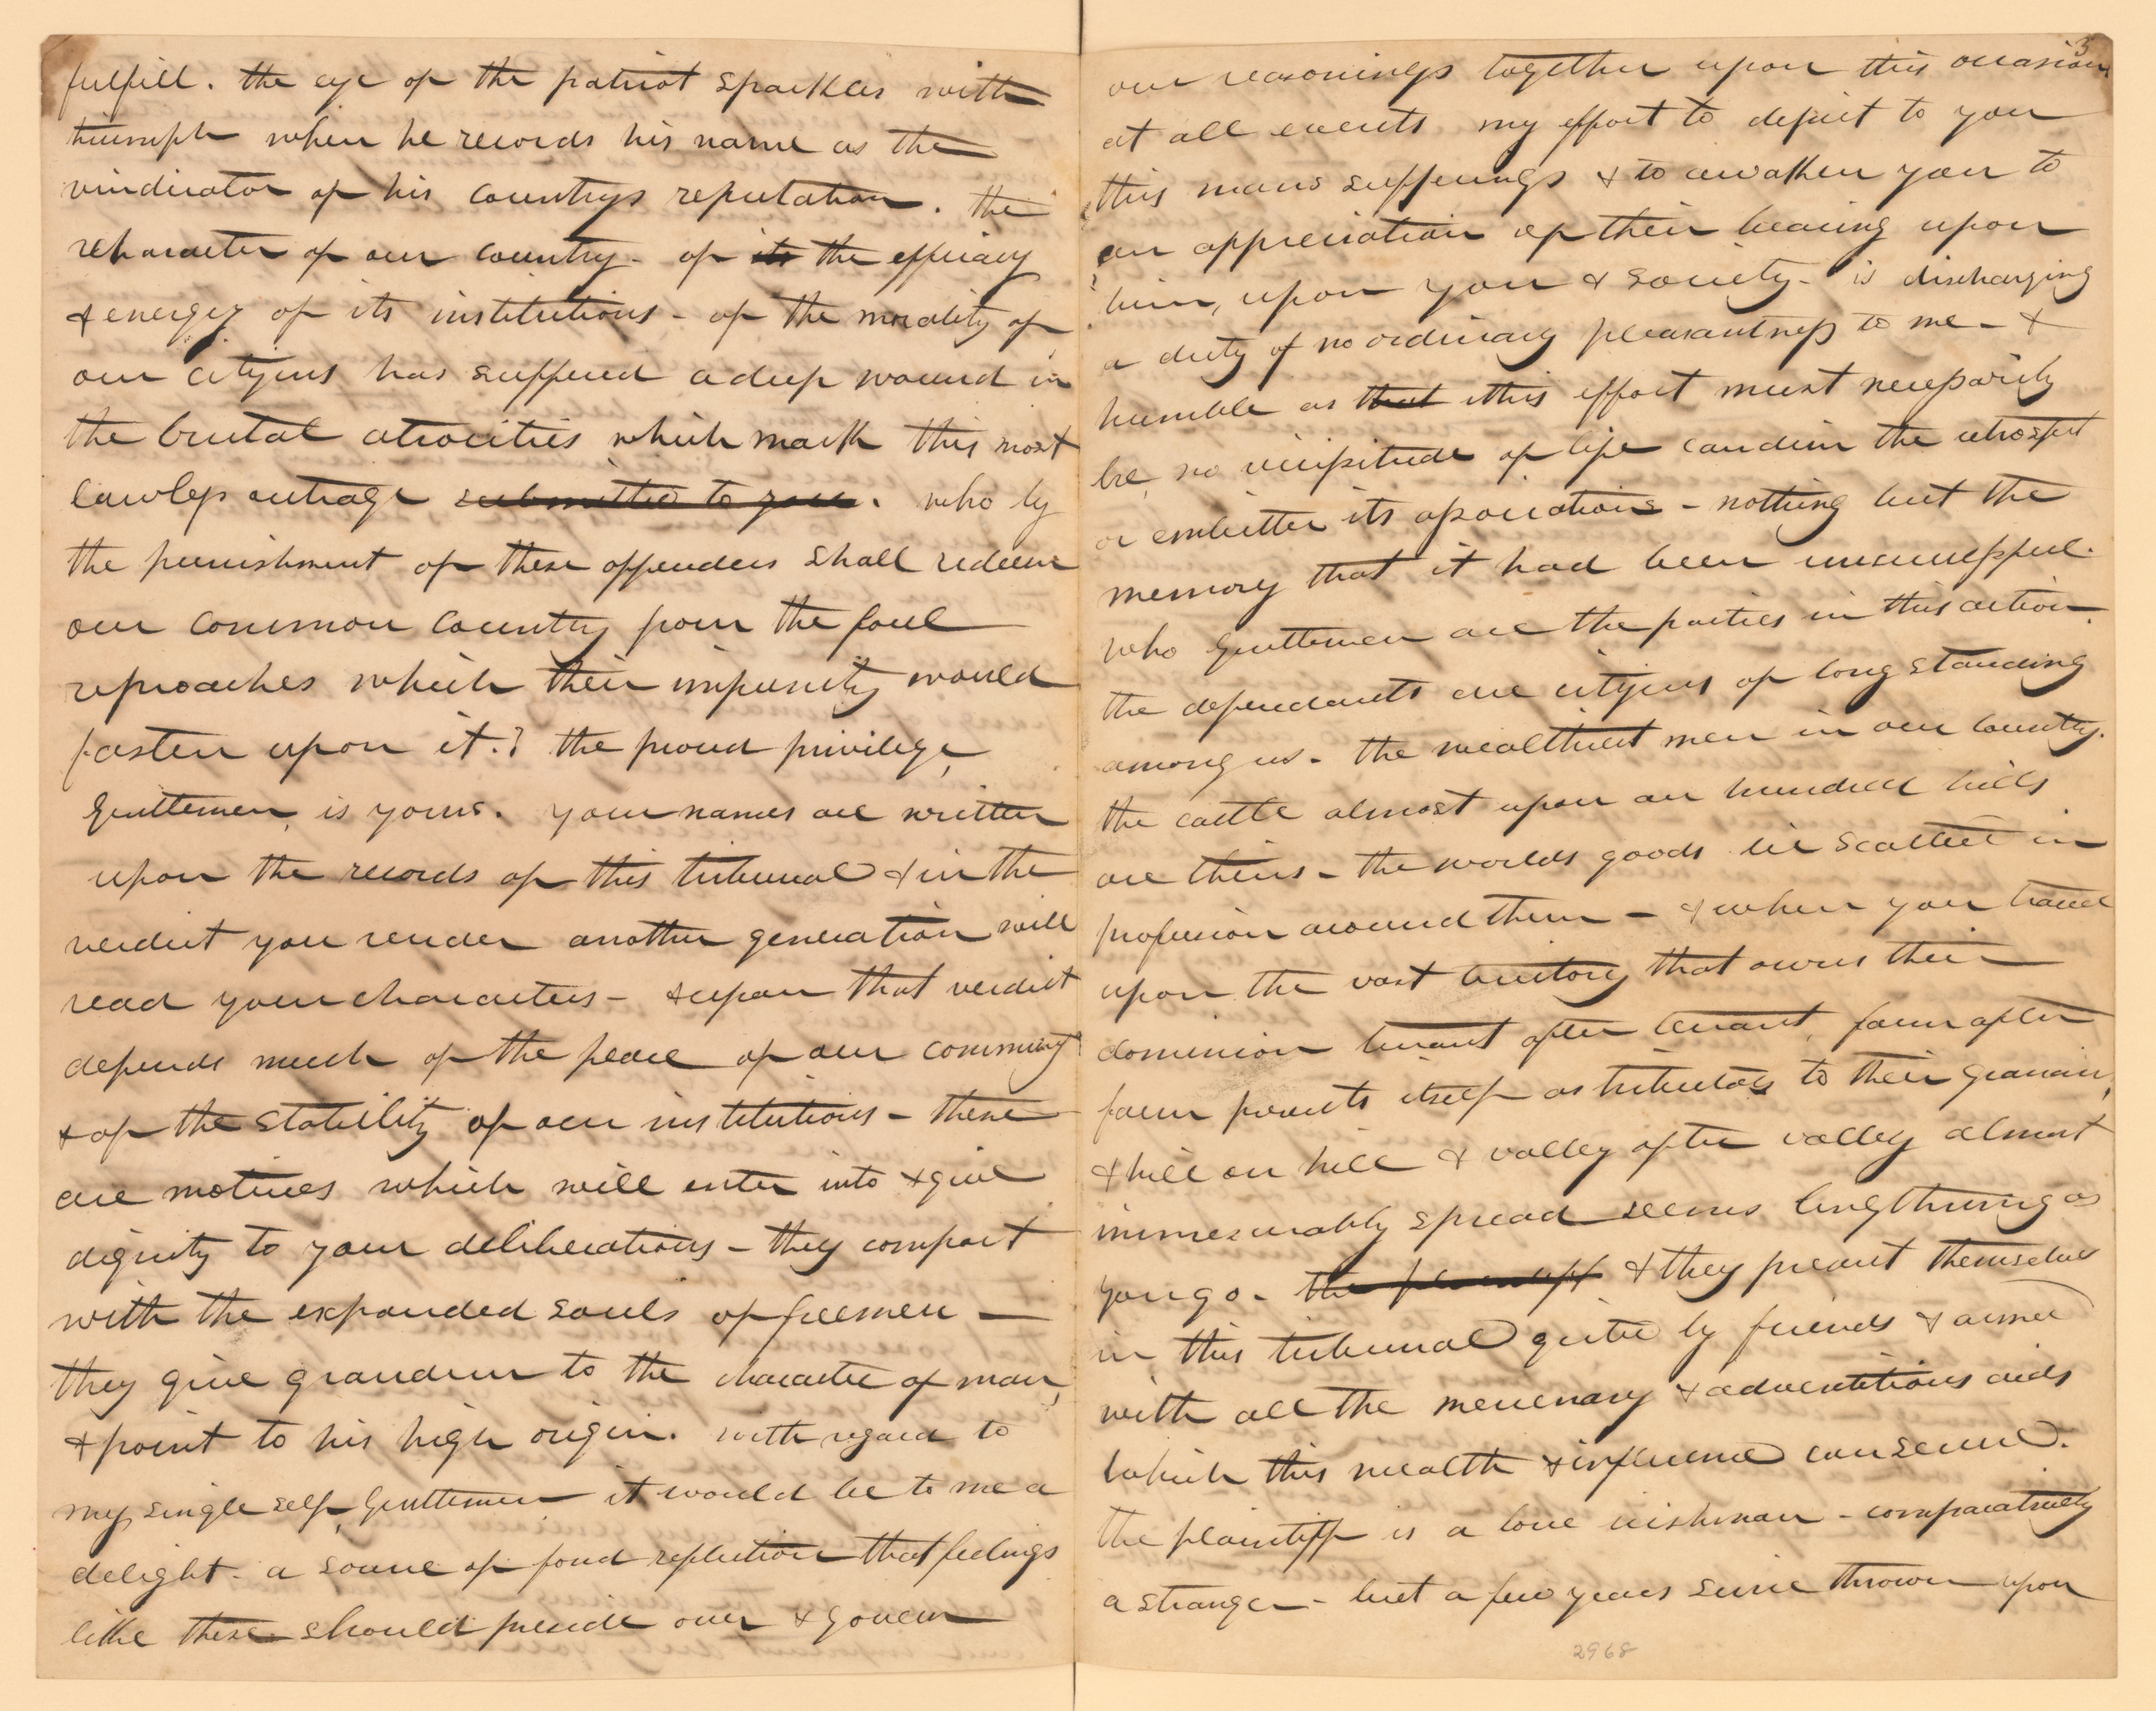 fulfill. the eye of the patriot sparkles with
triumph when he records his name as the
vindicator of his countrys reputation. the
character of our country - of its the efficacy
& energy of its institutions - of the morality of
our citizens has suffered a deep wound in
the brutal atrocities which mark this most
lawless outrage submitted to you. who by
the punishment of these offenders shall redeem
our common country from the foul
reproaches which their impunity would
fasten upon it.? the proud privilege,
Gentlemen, is yours. your names are written
upon the records of this tribunal & in the
verdict you render another generation will
read your characters - & upon that verdict
depends much of the peace of our community
& of the stability of our institutions - these
are motives which will enter into & give
dignity to your deliberations - they comport
with the expanded souls of freemen -
they give grandeur to the character of man,
& point to his high origin. with regard to
my single self, Gentlemen it would be to me a
delight - a source of fond reflection that feelings
like these should preside over & govern
3
our reasonings together upon this occasion
at all events my effort to depict to you
this mans sufferings & to awaken you to
an appreciation of their bearing upon
him, upon you & society - is discharging
a duty of no ordinary pleasantness to me - &
humble as that this effort must necessarily
be, no vicissitude of life can dim the retrospect
or embitter its associations - nothing but the
memory that it had been unsuccessful.
who Gentlemen are the parties in this action.
the defendants are citizens of long standing
among us - the wealthiest men in our county.
the cattle almost upon an hundred hills
are theirs - the worlds goods lie scattered in
profusion around them - & when you travel
upon the vast territory that owns their
dominion tenant after tenant, farm after
farm presents itself as tributary to their granary,
& hill on hill & valley after valley almost
immesurably spread seems lengthning as
you go - the plaintiff & they present themselves
in this tribunal girted by friends & armed
with all the mercenary & adventitious aids
which this wealth & influence can secure.
the plaintiff is a lone irishman - comparatively
a stranger - but a few years since thrown upon
2968